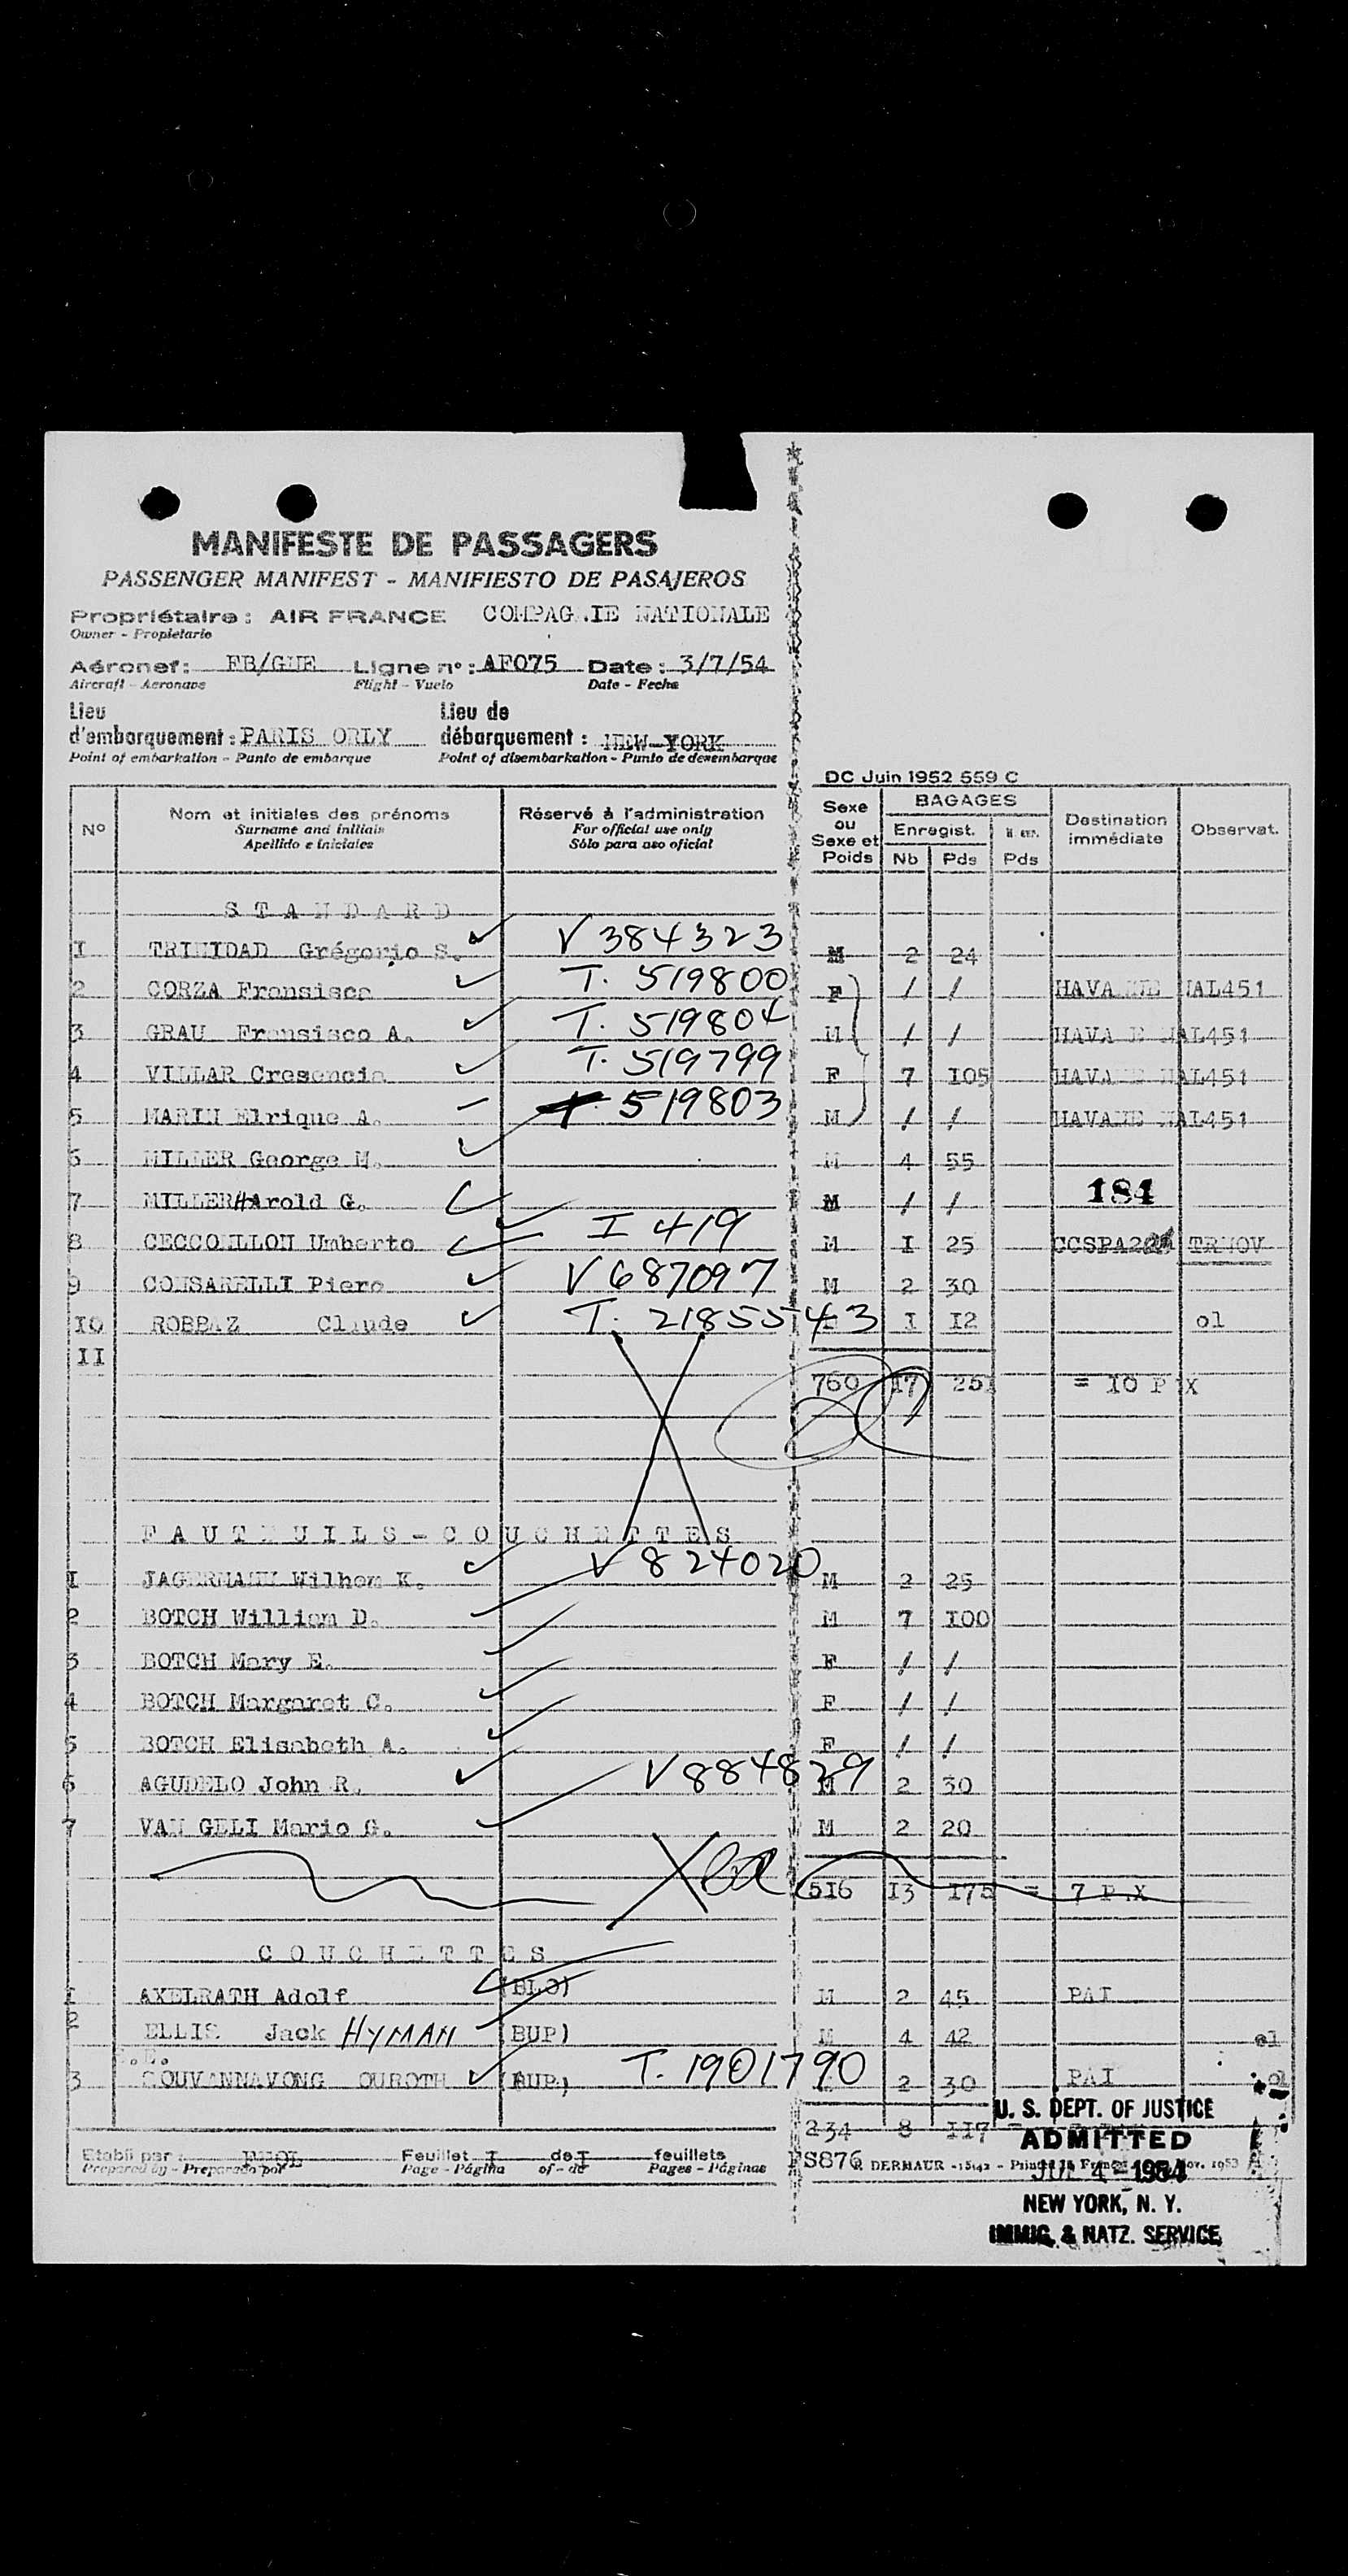 MANIFESTE DE PASSAGERS
PASSENGER MANIFEST - MANIFIESTO DE PASAJEROS
Propriétaire : AIR FRANCE COMPAG.IE NATIONALE
Owner - Propietario
Aéronef: FB/GUE Ligne n°: AF075 Date : 3/7/54
Aircraft - Aeronave Flight - Vuelo Date - Fecha
Lieu d'embarquement : PARIS ORLY Lieu de débarquement : NEW-YORK
Point of embarkation - Punto de embarque Point of disembarkation - Punto de desembarque
DC Juin 1952 559 C
N° Nom et initiales des prénoms Réservé à l'administration Sexe ou Sexe et Poids BAGAGES Destination immédiate Observat.
Surname and initials For official use only Enregist.
Apellido e iniciales Sólo para uso oficial Nb Pds Pds
STANDARD
I TRINIDAD Grégorio S. V 384323 M 2 24
2 CORZA Fransisca T. 519800 F / / HAVA NAL451
3 GRAU Fransisco A. T. 519804 M / / HAVA NAL451
4 VILLAR Cresencia T. 519799 F 7 I05 HAVA NAL451
5 MARIN Elrique A. 519803 M / / HAVANE NAL451
6 MILLER George M. M 4 55
7 MILLER HArold G. M / / 184
8 Umberto I 419 M I 25
9 CONSARELLI Piero V 687097 M 2 30
IO ROBBAZ Claude T. 2185543 I I2 ol
II
760 I7 251 = IO P X
FAUTEUILS-COUCHETTES
I JAGERMANN Wilhem K. V 824020 M 2 25
2 BOTCH William D. M 7 I00
3 BOTCH Mary E. F / /
4 BOTCH Margaret C. F / /
5 BOTCH Elisabeth A. F / /
6 AGUDELO John R. V 884829 M 2 30
7 VAN GELI Mario G. M 2 20
516 I3 I75 = 7 P.X
COUCHETTES
I AXELRATH Adolf (BLO) M 2 45 PAI
2 ELLIS Jack HYMAN (BUP) M 4 42 ol
3 SOUVANNAVONG OUROTH (BUP) T. 1901790 2 30 PAI ol
234 8 117
Etabli par : Feuillet I de I feuillets
Prepared by - Preparado por Page - Página of - de Pages - Páginas
DERMAUR - 15142 - Printed in France Nov. 1953
U. S. DEPT. OF JUSTICE
ADMITTED
JUL 4 - 1954
NEW YORK, N. Y.
IMMIG. & NATZ. SERVICE